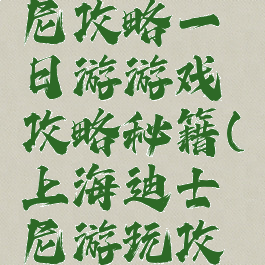 尼攻略一
日游游戏
攻略秘籍(
上海迪士
尼游玩攻